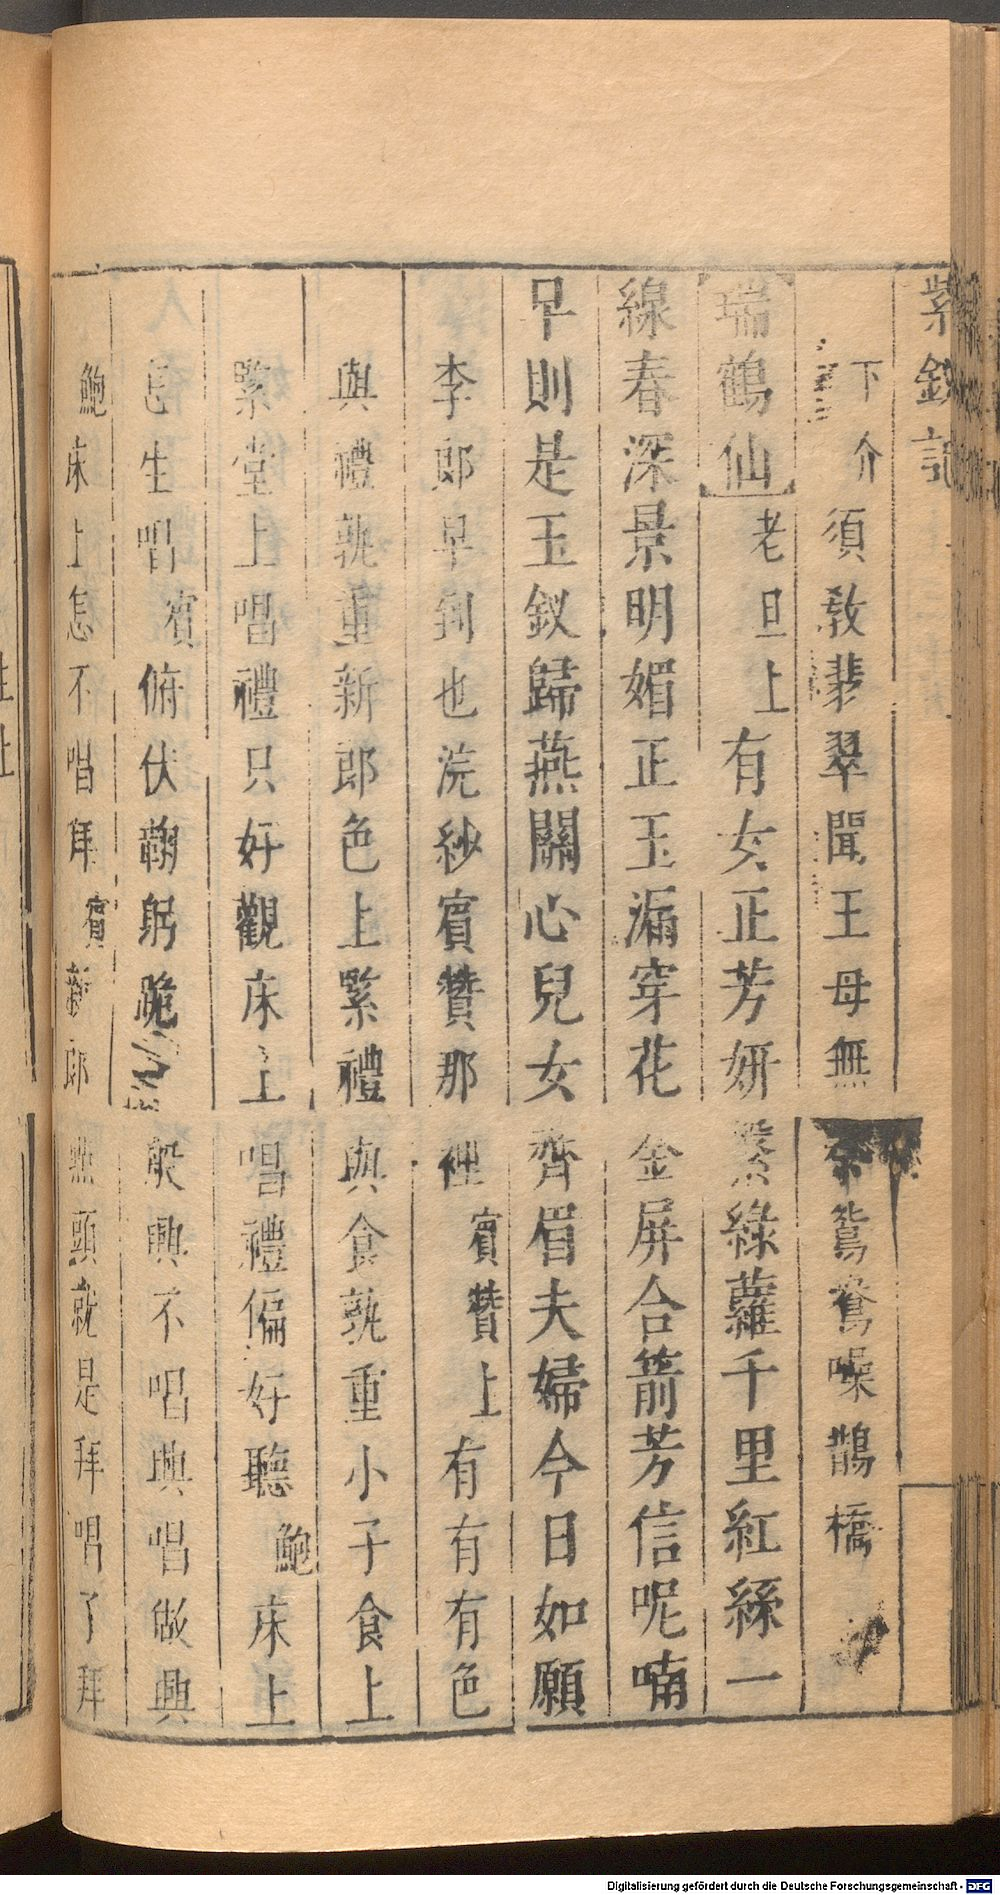 紫釵記
下介須教翡翠聞王母無奈鴛鴦噪鵲橋
瑞鶴仙老旦上有女正芳妍繫綠蘿千里紅絲一
線春深景明媚正玉漏穿花金屏合箭芳信呢喃
早則是玉釵歸燕關心兒女齊眉夫婦今日如願
李郎早到也浣紗賓贊那裡賓贊上有有有色
與禮孰重新郎色上緊禮與食孰重小子食上
緊堂上唱禮只好觀床上唱禮偏好聽鮑床上
怎生唱賓俯伏鞠躬跪般興不唱興唱做興
鮑床上怎不唱拜賓新郎點頭就是拜唱了拜
Digitalisierung gefördert durch die Deutsche Forschungsgemeinschaft - DFG